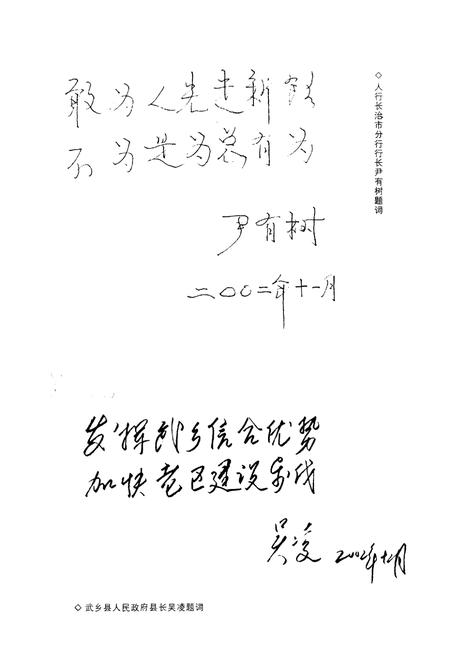 敢为人先走新路
不为是为总有为
尹有树
二〇〇二年十一月
◇人行长治市分行行长尹有树题词
发挥武乡信合优势
加快老区建设步伐
吴凌 2002年十月
◇武乡县人民政府县长吴凌题词